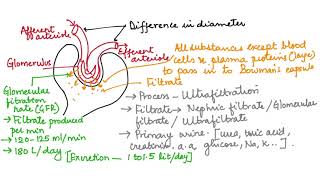 Difference in diameter
Afferent
arteriole
Efferent
arteriole
Glomerulus
All substances except blood
cells & plasma proteins (large)
to pass in to Bowman's capsule
Filtrate
Glomerular
filtration
rate (GFR)
→ Filtrate
produced
per min
→ 120-125 ml/min
→ 180 L/day
[Excretion - 1 to 1.5 lit/day]
→ Process - Ultrafiltration
→ Filtrate → Nephric filtrate / Glomerular
filtrate / Ultrafiltrate
→ Primary urine. [urea, uric acid,
creatinine, a.a, glucose, Na, K...].